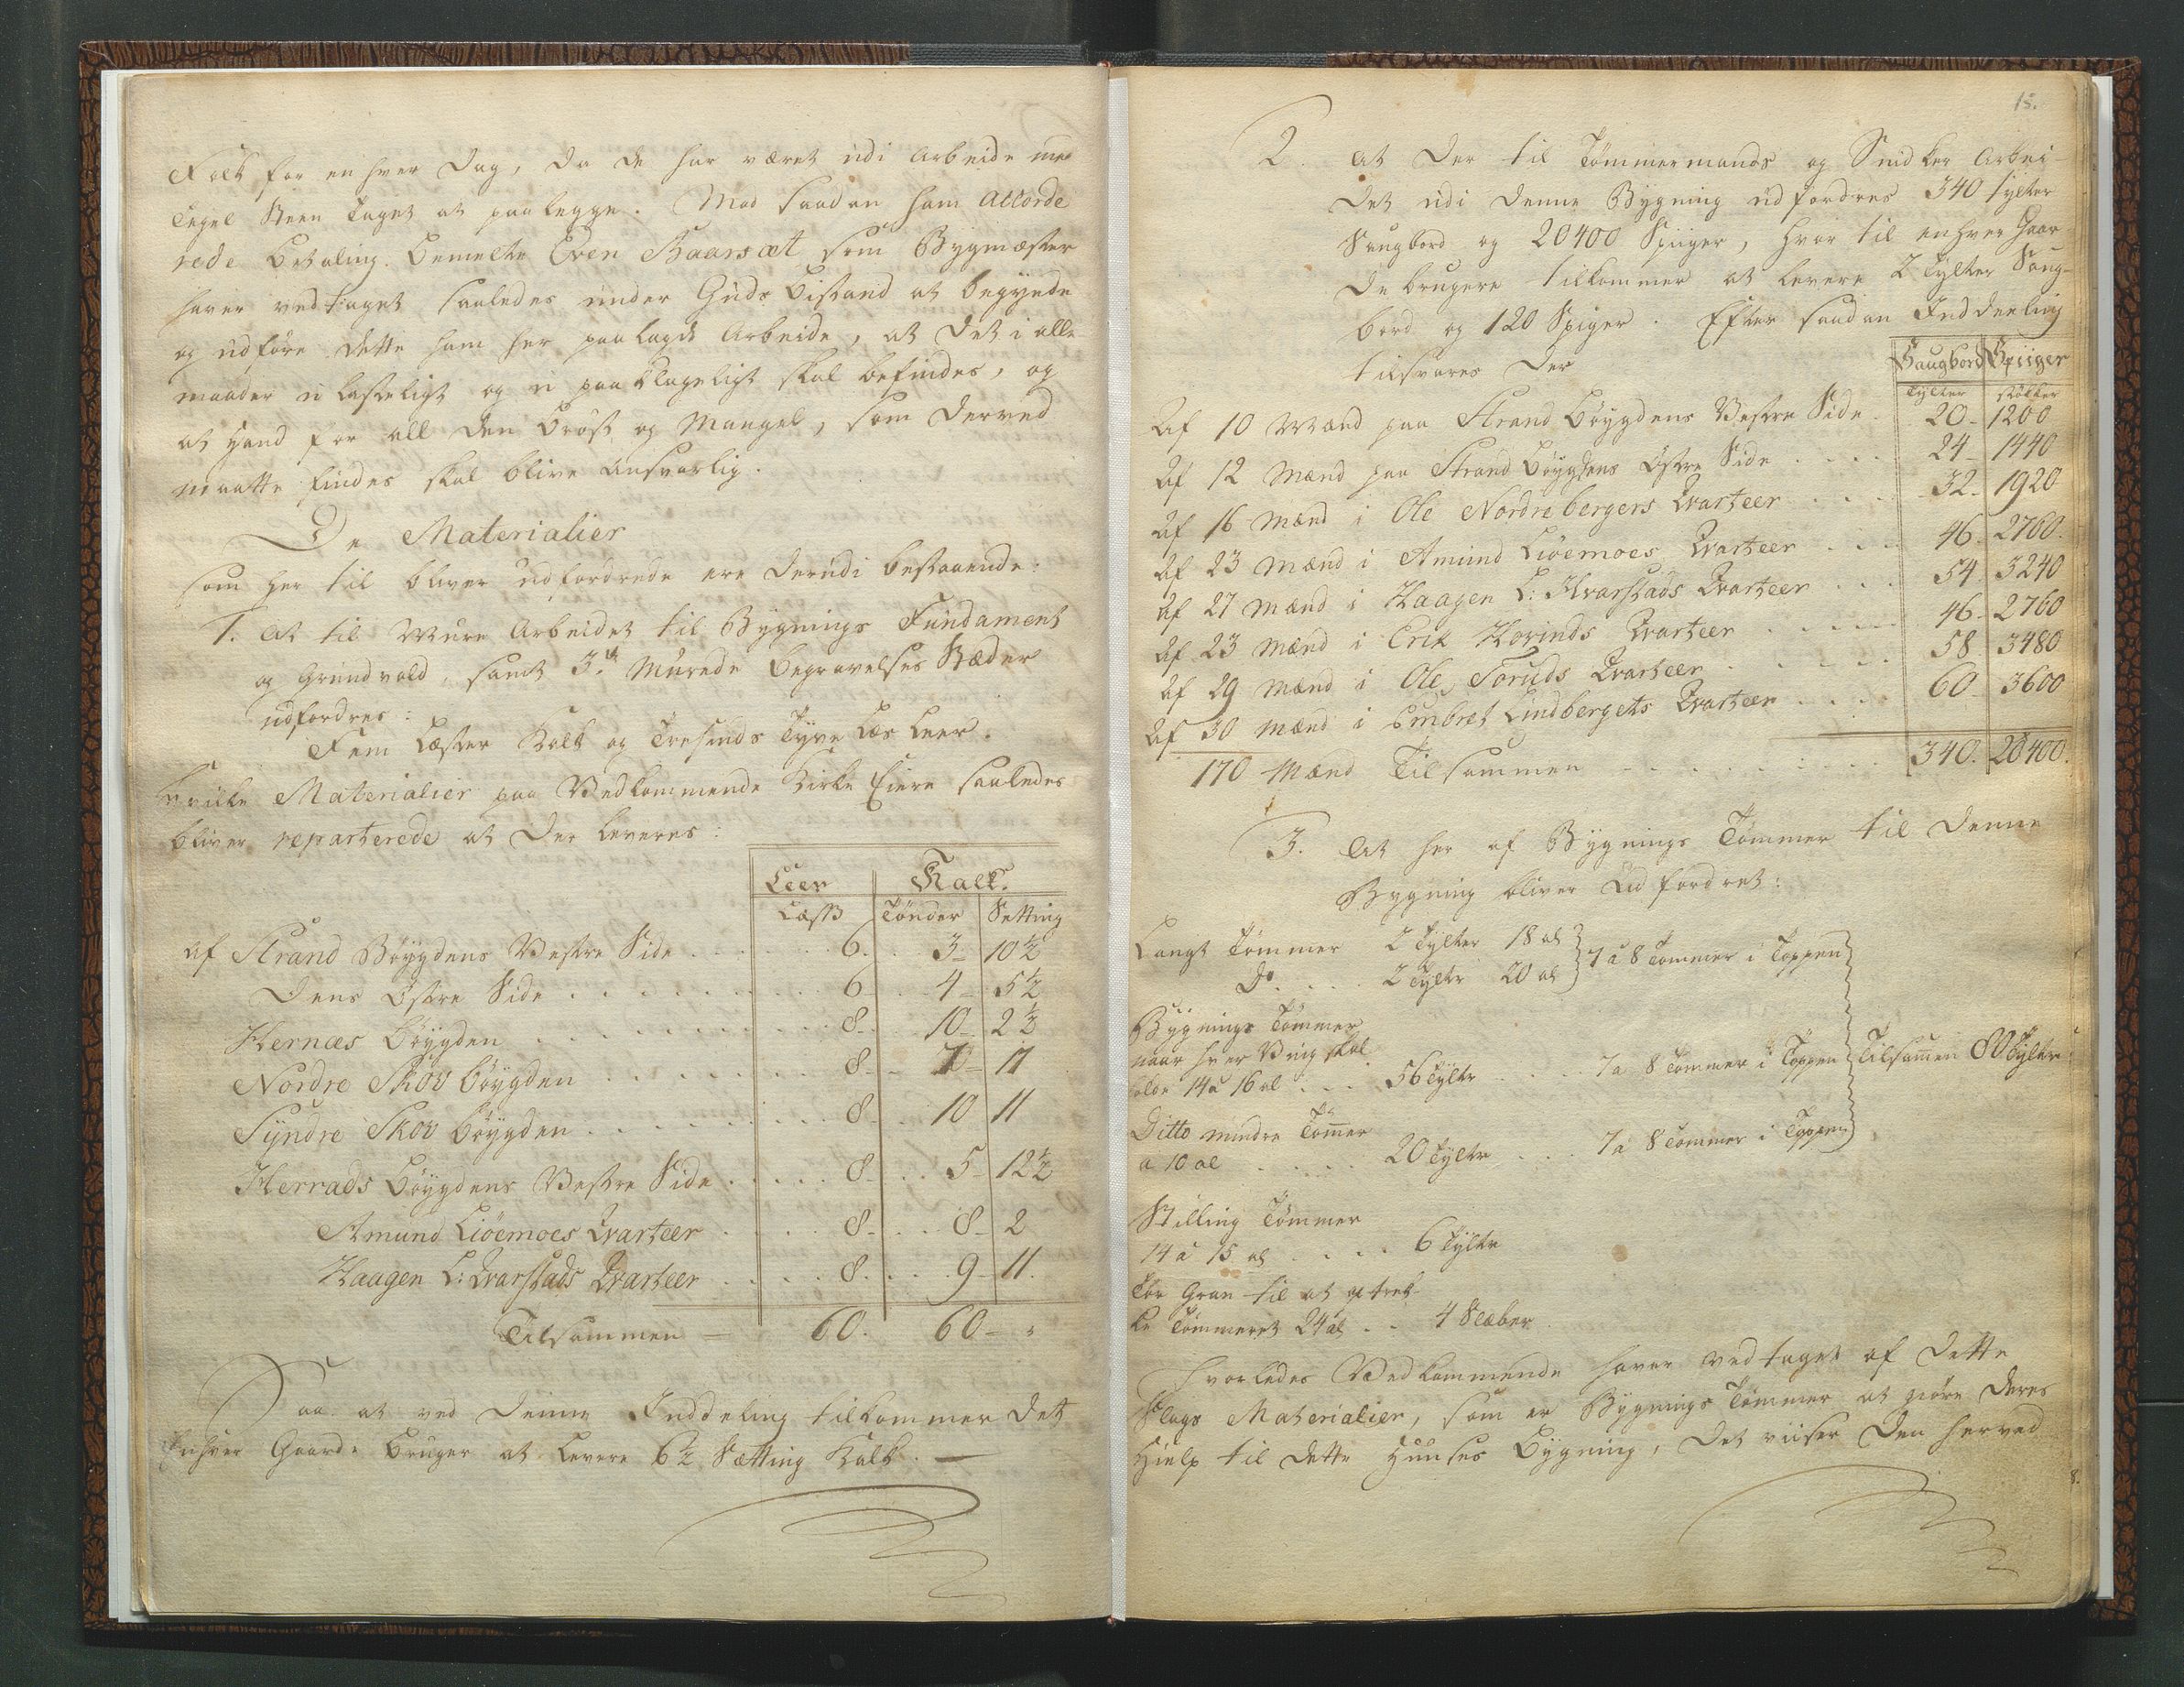 Folk for en hver Dag, da de har været udi Arbeide med
Tegel Steen Taget at paalegge. Mod saadan ham Accorde
rede betaling. bemelte Even Baarsæt som Bygmæster
haver vedtaget saaledes under Guds bistand at begynde
og udføre dette ham her paalagde Arbeide, at det i alle
maader u lasteligt og u paaklageligt skal befindes, og
at hand for all den Brøst og Mangel, som derved
maatte findes skal blive ansvarlig.
De Materialier
som her til bliver udfordrede ere derudi bestaaende:
1. At til Mure Arbeidet til Bygnings Fundament
og Grundvold, samt 3de Murede begravelses Stæder
udfordres:
Fem Læster Kalk og Tresinds Tyve Læs Leer.
hvilke Materialier paa Vedkommende Kirke Eiere saaledes
bliver reparterede at der leveres:
Leer Kalk.
Læss Tønder Setting
af Strand Bøygdens Vestre Side . . . 6. 3 - 10 1/2
Dens Østre Side . . . 6 4 - 5 1/2
Hernæs bøygden . . . 8 - 10 - 2 1/2
Nordre Skov bøygden . . . 8 - 7 - 11
Syndre Skov bøygden . . . 8 - 10 11
Herrads bøygdens Vestre Side . . . 8 - 5 - 12 1/2
Amund Liøemoes Qvarteer . . . 8 - 8 - 2
Haagen L: Qvarstads Qvarteer . . . 8 . 9 - 11.
Tilsammen — 60. 60 - "
Saa at ved denne Inddeling tilkommer det
Enhver Gaards bruger at levere 6 1/2 Sætting Kalk. —
15.
2. At der til Tømmermands og Snidker Arbei-
det udi denne Bygning udfordres 340 tylter
Saugbord og 20400 Spiiger, hvor til enhver Gaar-
de brugere tilkommer at levere 2 Tylter Saug-
bord og 120 Spiger. Efter saadan Inddeeling
tilsvares der
Saugbord Spiiger
Tylter støkker
Af 10 Mænd paa Strand bøygdens Vestre Side . 20 - 1200
Af 12 Mænd paa Strand bøygdens Østre Side . . . 24 - 1440
Af 16 Mænd i Ole Nordrebergers Qvarteer . . . 32 - 1920
Af 23 Mænd i Amund Liøemoes Qvarteer . . . 46. 2760.
Af 27 Mænd i Haagen L: Kvarstads Qvarteer . . . 54. 3240
Af 23 Mænd i Erik Hovinds Qvarteer . . . 46 - 2760
Af 29 Mænd i Ole Foruds Qvarteer . . . 58. 3480
Af 30 Mænd i Embret Lindbergets Qvarteer . . . 60 - 3600
170 Mænd Tilsammen . . . 340. 20400.
3. At her af Bygnings Tømmer til denne
Bygning bliver udfordret:
Langt Tømmer 2 Tylter 18 al } 7 a 8 Tommer i Toppen
Do. . . . 2 Tylter 20 al
Bygnings Tømmer
naar hver Væg skal
holde 14 a 16 al . . . 56 Tylter . . . 7 a 8 Tommer i Toppen } Tilsamen 80 Tylter
Ditto mindre Tømer
a 10 al . . . 20 Tylter . . . 7 a 8 Tommer i Toppen
Stilling Tømmer
14 a 15 al . . . 6 Tylter
Tør Gran til at optrek-
ke Tømmeret 24 al . . 4 Stæber
Hvorledes Vedkommende haver vedtaget af dette
Slags Materialier, som er Bygnings Tømmer at giøre deres
Hielp til dette Huuses Bygning, det viiser den herved